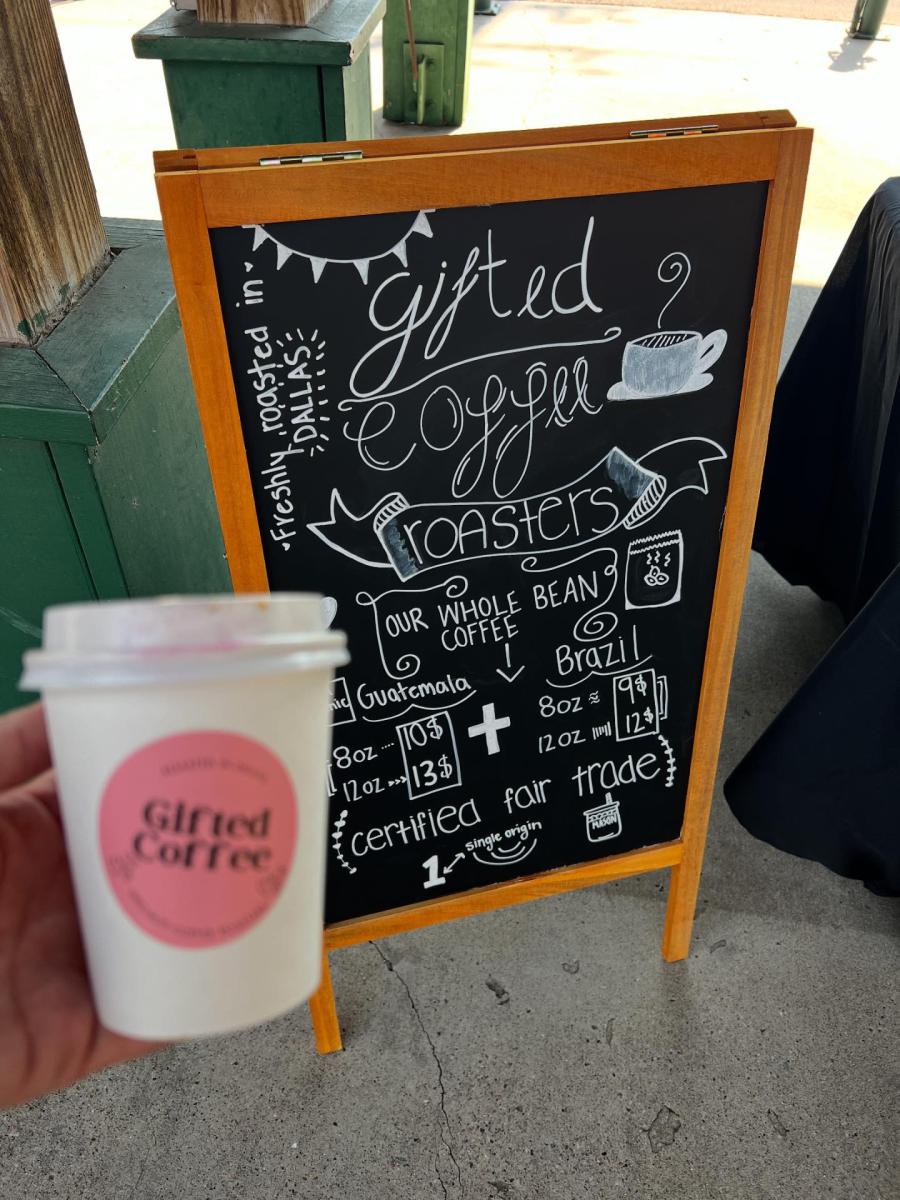 Freshly roasted in
DALLAS
gifted
coffee
roasters
OUR WHOLE BEAN
COFFEE
Guatemala
8oz 10$
12oz 13$
+
Brazil
8oz ≈ 9$
12oz 12$
certified fair trade
1 single origin
MASON
Gifted
Coffee